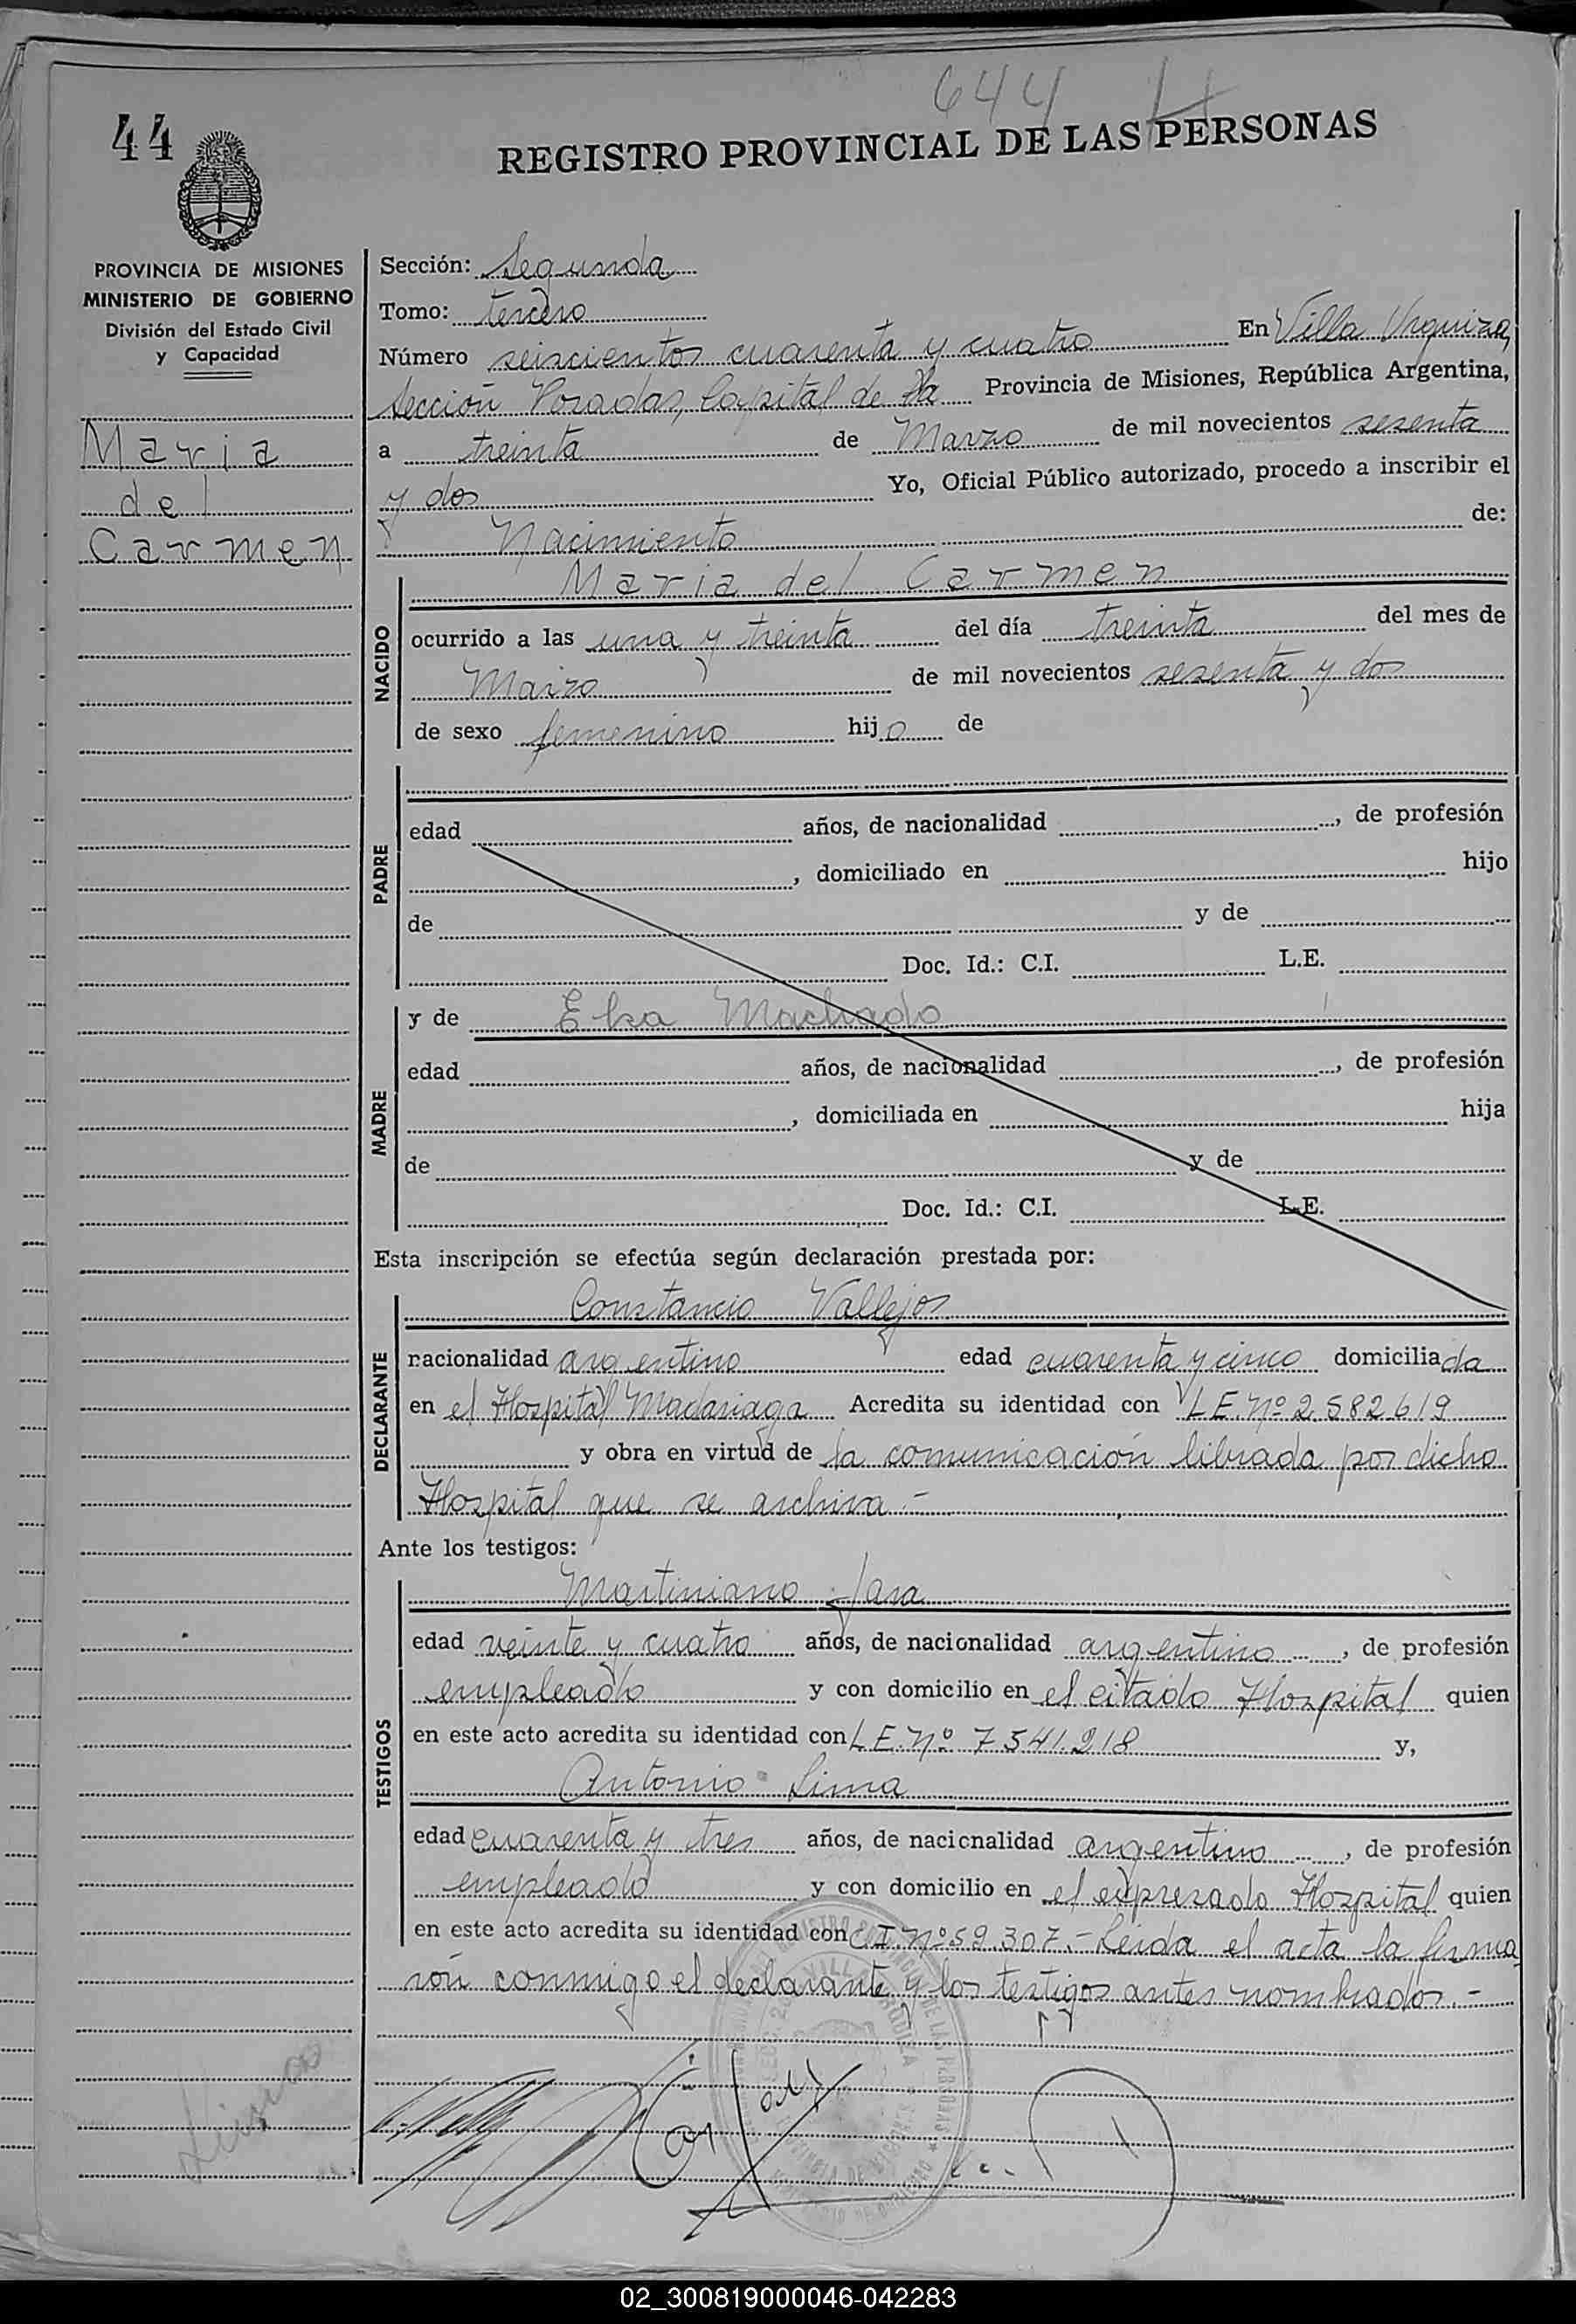 644
44
REGISTRO PROVINCIAL DE LAS PERSONAS
PROVINCIA DE MISIONES
MINISTERIO DE GOBIERNO
División del Estado Civil
y Capacidad
Maria
del
Carmen
Sección: Segunda
Tomo: tercero
Número seiscientos cuarenta y cuatro En Villa Urquiza,
sección Posadas, Capital de la Provincia de Misiones, República Argentina,
a treinta de Marzo de mil novecientos sesenta
y dos Yo, Oficial Público autorizado, procedo a inscribir el
Nacimiento de:
NACIDO
Maria del Carmen
ocurrido a las una y treinta del día treinta del mes de
Marzo de mil novecientos sesenta y dos
de sexo femenino hijo de
PADRE
edad años, de nacionalidad , de profesión
, domiciliado en hijo
de y de
Doc. Id.: C.I. L.E.
MADRE
y de Elsa Machado
edad años, de nacionalidad , de profesión
, domiciliada en hija
de y de
Doc. Id.: C.I. L.E.
Esta inscripción se efectúa según declaración prestada por:
DECLARANTE
Constancio Vallejos
nacionalidad argentino edad cuarenta y cinco domiciliada
en el Hospital Madariaga Acredita su identidad con L E. Nº 2.582.619
y obra en virtud de la comunicación librada por dicho
Hospital que se archiva.-
Ante los testigos:
TESTIGOS
Martiniano Jara
edad veinte y cuatro años, de nacionalidad argentino , de profesión
empleado y con domicilio en el citado Hospital quien
en este acto acredita su identidad con L E. Nº 7.541.218 y,
Antonio Lima
edad cuarenta y tres años, de nacionalidad argentino , de profesión
empleado y con domicilio en el expresado Hospital quien
en este acto acredita su identidad con C I. Nº 59.307.- Leida el acta la firma
rón conmigo el declarante y los testigos antes nombrados.-
02_300819000046-042283